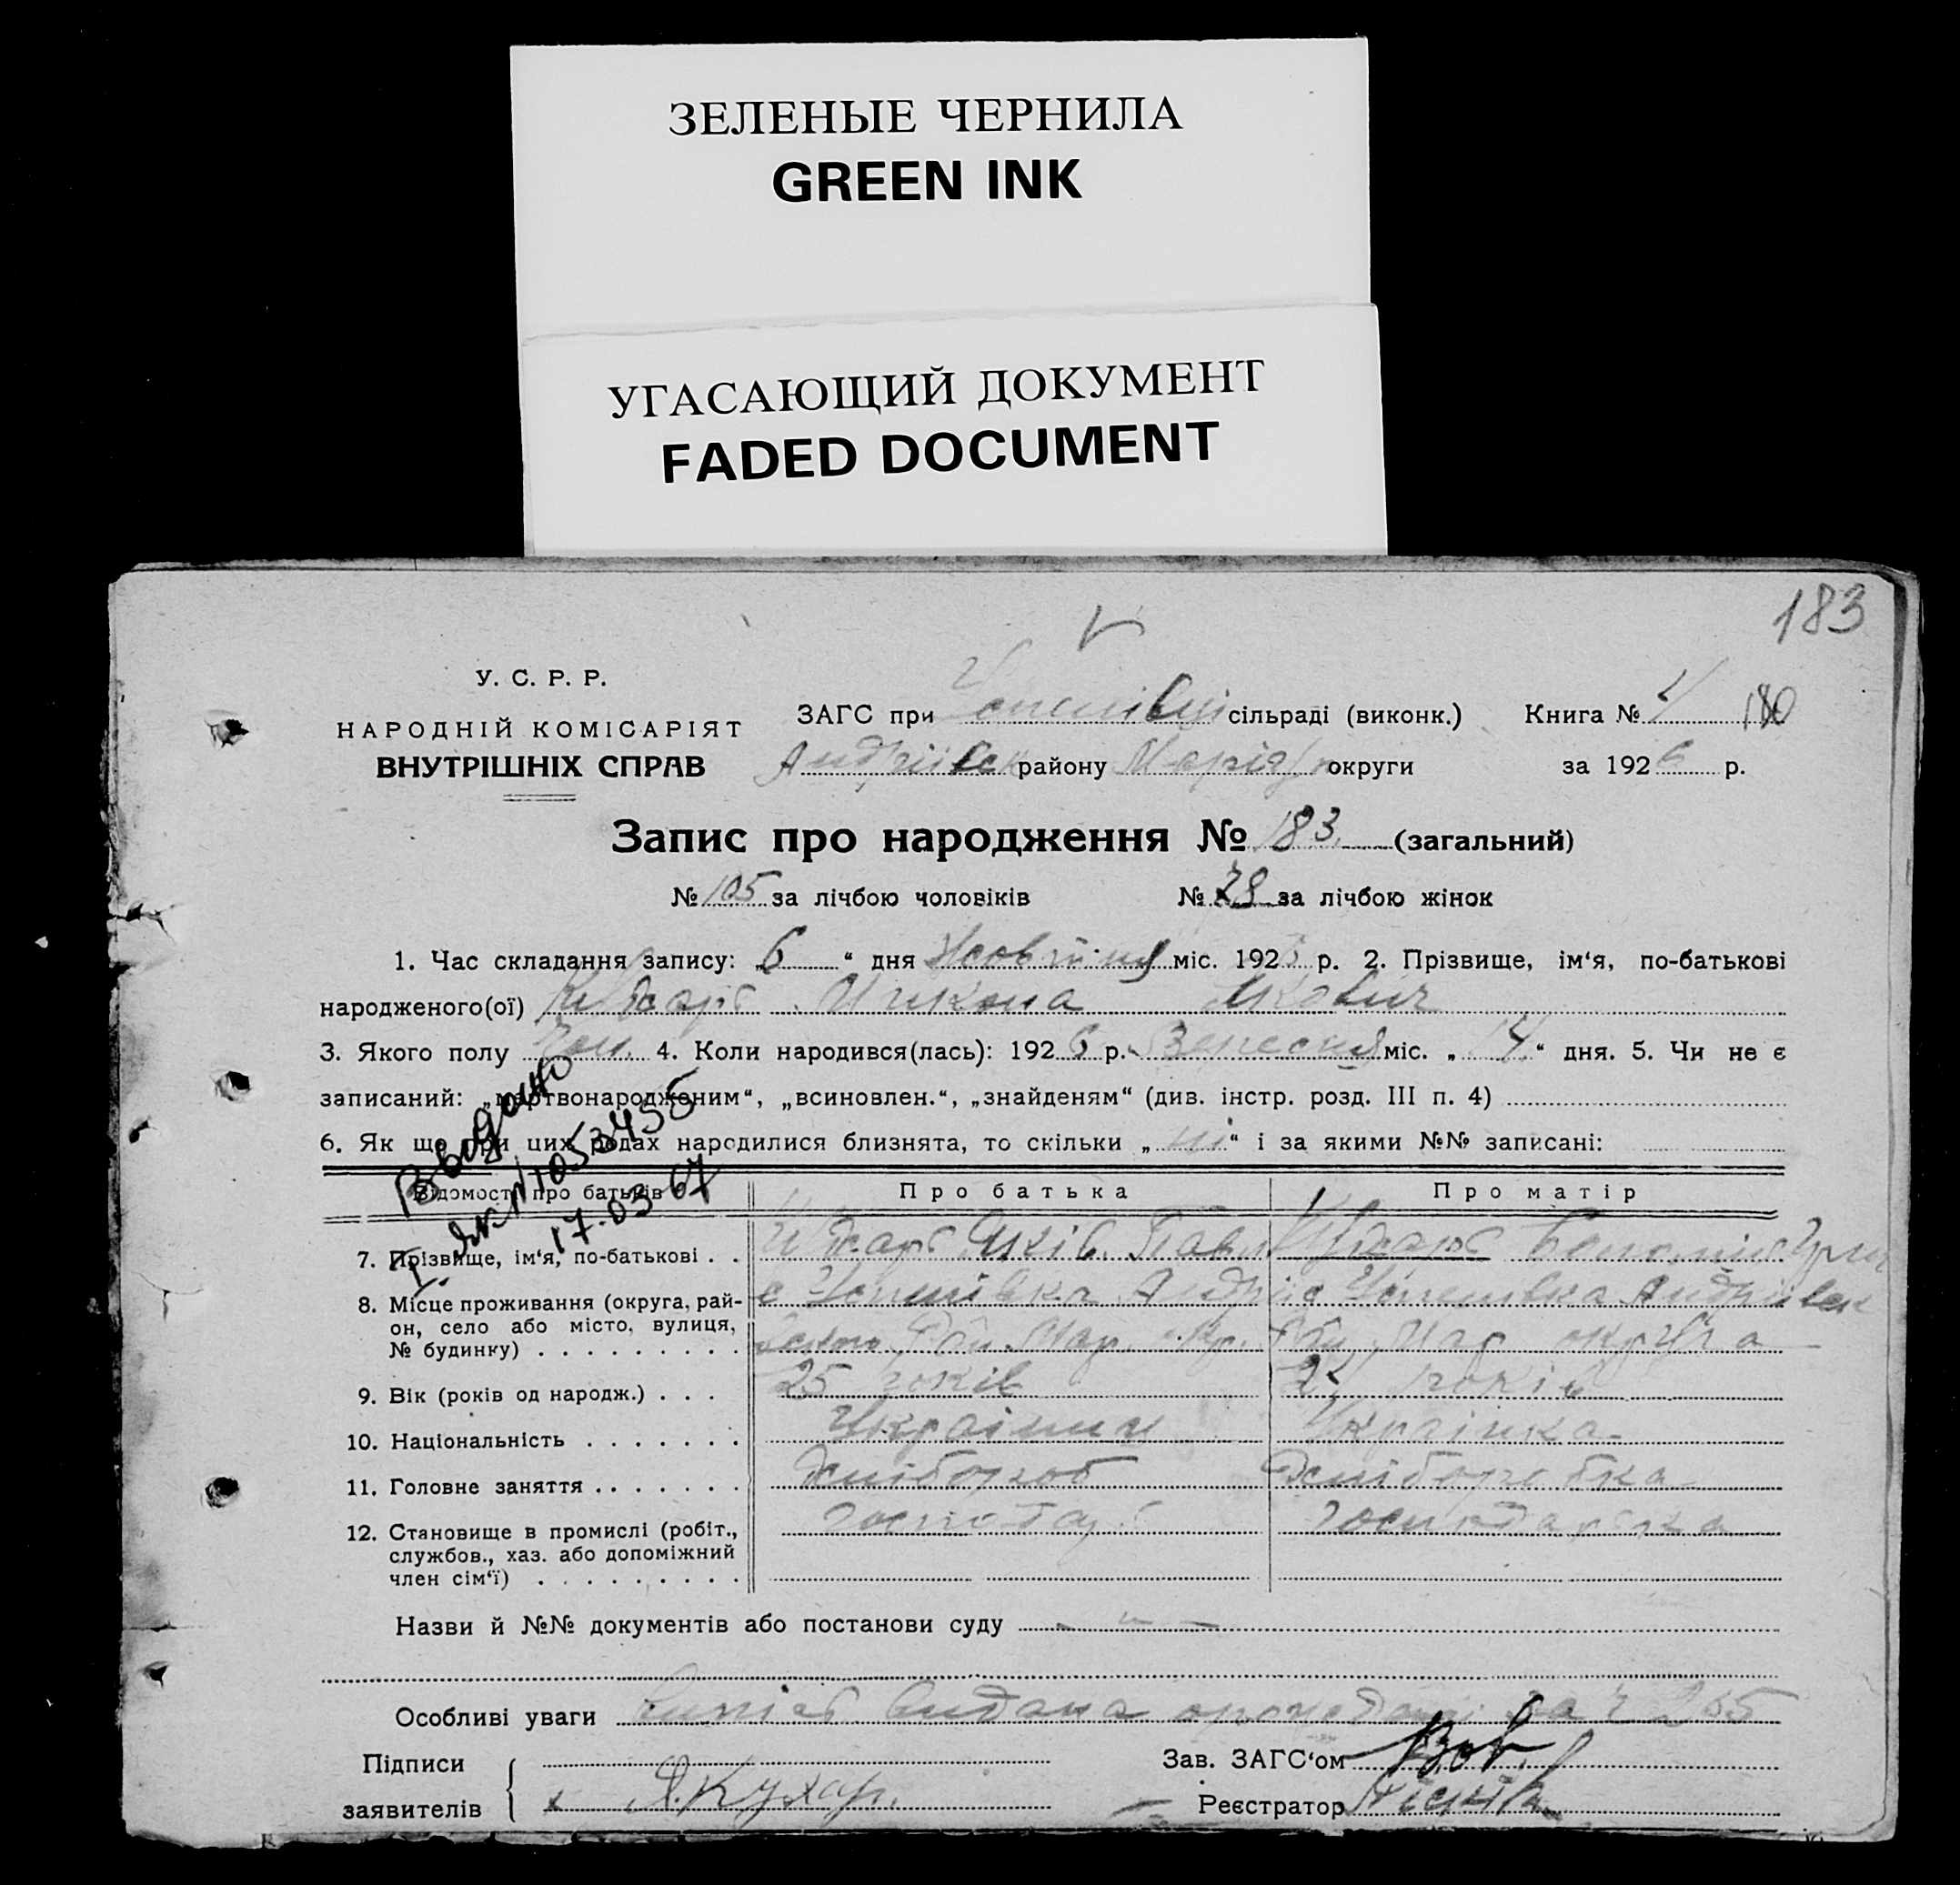 ЗЕЛЕНЫЕ ЧЕРНИЛА
GREEN INK
УГАСАЮЩИЙ ДОКУМЕНТ
FADED DOCUMENT
183
У. С. Р. Р.
НАРОДНІЙ КОМІСАРІЯТ
ВНУТРІШНІХ СПРАВ
ЗАГС при сільраді (виконк.) Книга № 4 180
Андріївськ району Маріюп округи за 1926 р.
Запис про народження № 183 (загальний)
№ 105 за лічбою чоловіків № 78 за лічбою жінок
1. Час складання запису: „6“ дня Жовтня міс. 1926 р. 2. Прізвище, ім‘я, по-батькові
народженого(ої) Якович
3. Якого полу чол. 4. Коли народився(лась): 1926 р. Вересня міс. „14“ дня. 5. Чи не є
записаний: „мертвонародженим“, „всиновлен.“, „знайденям“ (див. інстр. розд. III п. 4)
6. Як що при цих родах народилися близнята, то скільки „ні“ і за якими №№ записані:
Выдано
17.03 67
Відомості про батьків Про батька Про матір
7. Прізвище, ім‘я, по-батькові . . Яків Пав
8. Місце проживання (округа, рай-
он, село або місто, вулиця,
№ будинку) . . . . . . . . . Рай. Мар. окр. Рай. Мар округа
с Успенівка с Успенівка Андріївськ
9. Вік (років од народж.) . . . 25 років 24 років
10. Національність . . . . . . . Українец Українка
11. Головне заняття . . . . . . . Хлібороб Хліборобка
12. Становище в промислі (робіт.,
службов., хаз. або допоміжний
член сім‘ї) . . . . . . . . . господарь господарька
Назви й №№ документів або постанови суду
Особливі уваги видана
Підписи
заявителів Я. Кухар.
Зав. ЗАГС‘ом
Реєстратор